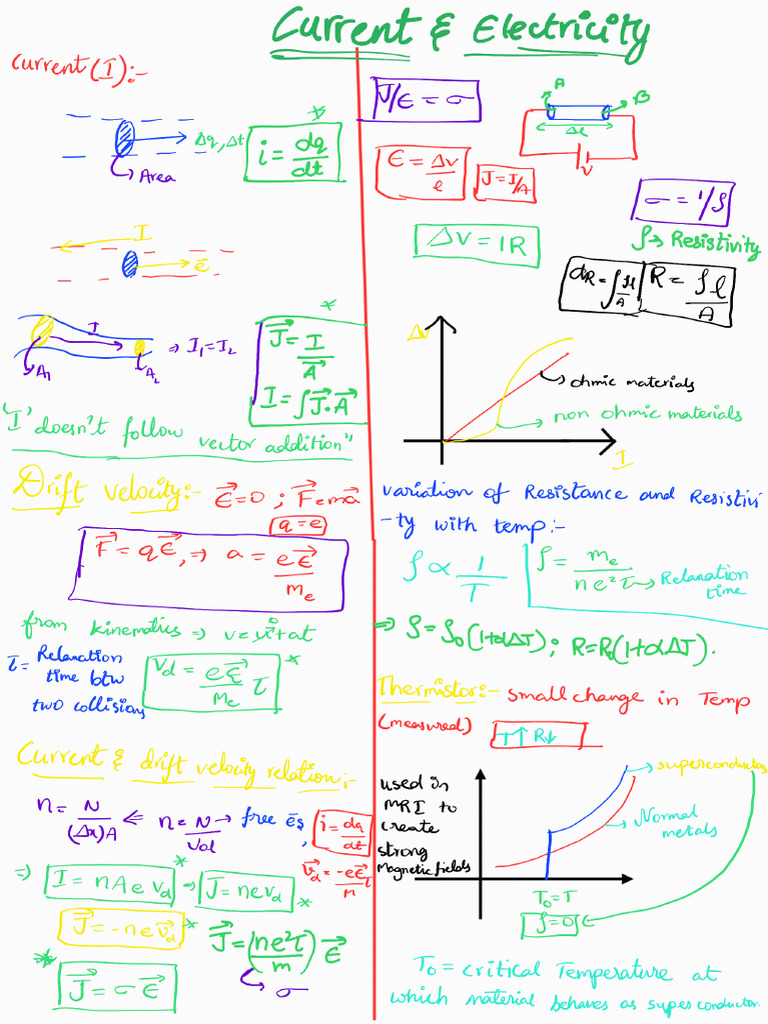 Current & Electricity
Current (I):-
Δq, Δt
Area
i = dq/dt
I
e̅
I
A1
A2
⇒ I₁ = I₂
J⃗ = I/A⃗
I = ∫J⃗·A⃗
'I' doesn't follow vector addition"
Drift velocity:- ε⃗=0 ; F⃗=ma
q = e
F⃗ = qε⃗, ⇒ a = eε⃗/me
from kinematics ⇒ v = u + at
τ = Relanation
time btw
two collisions
Vd = eε⃗/me τ
Current & drift velocity relation:-
n = N/(Δx)A ⇐ n = N/Vol → free e̅s,
i = dq/dt
v⃗d = -eε⃗/m τ
⇒ I = nAeVd ⇒ J⃗ = nevd
J⃗ = -nev⃗d
J⃗ = (ne²τ/m) ε⃗
σ
J⃗ = σε⃗
J⃗/ε = σ
A
B
Δl
V
ε = Δv/l
J = I/A
σ = 1/ρ
ρ → Resistivity
ΔV = IR
dR = ∫ρl/A
R = ρl/A
Δv
ohmic materials
non ohmic materials
I
variation of Resistance and Resistivi
-ty with temp:-
ρ ∝ 1/T
ρ = me/ne²τ → Relanation
time
⇒ ρ = ρ₀(1+αΔT); R=R₀(1+αΔT).
Thermistor:- small change in Temp
(measured)
T↑ R↓
used in
MRI to
create
strong
Magnetic fields
superconductor
Normal
metals
T₀ = T
ρ=0
T₀ = critical Temperature at
which material behaves as superconductor.